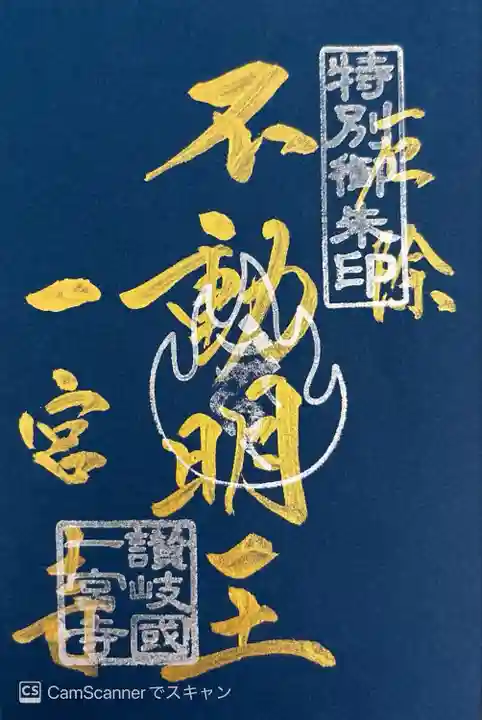 特別御朱印
厄除
不動明王
一宮寺
讃岐國
一宮寺
CS CamScannerでスキャン